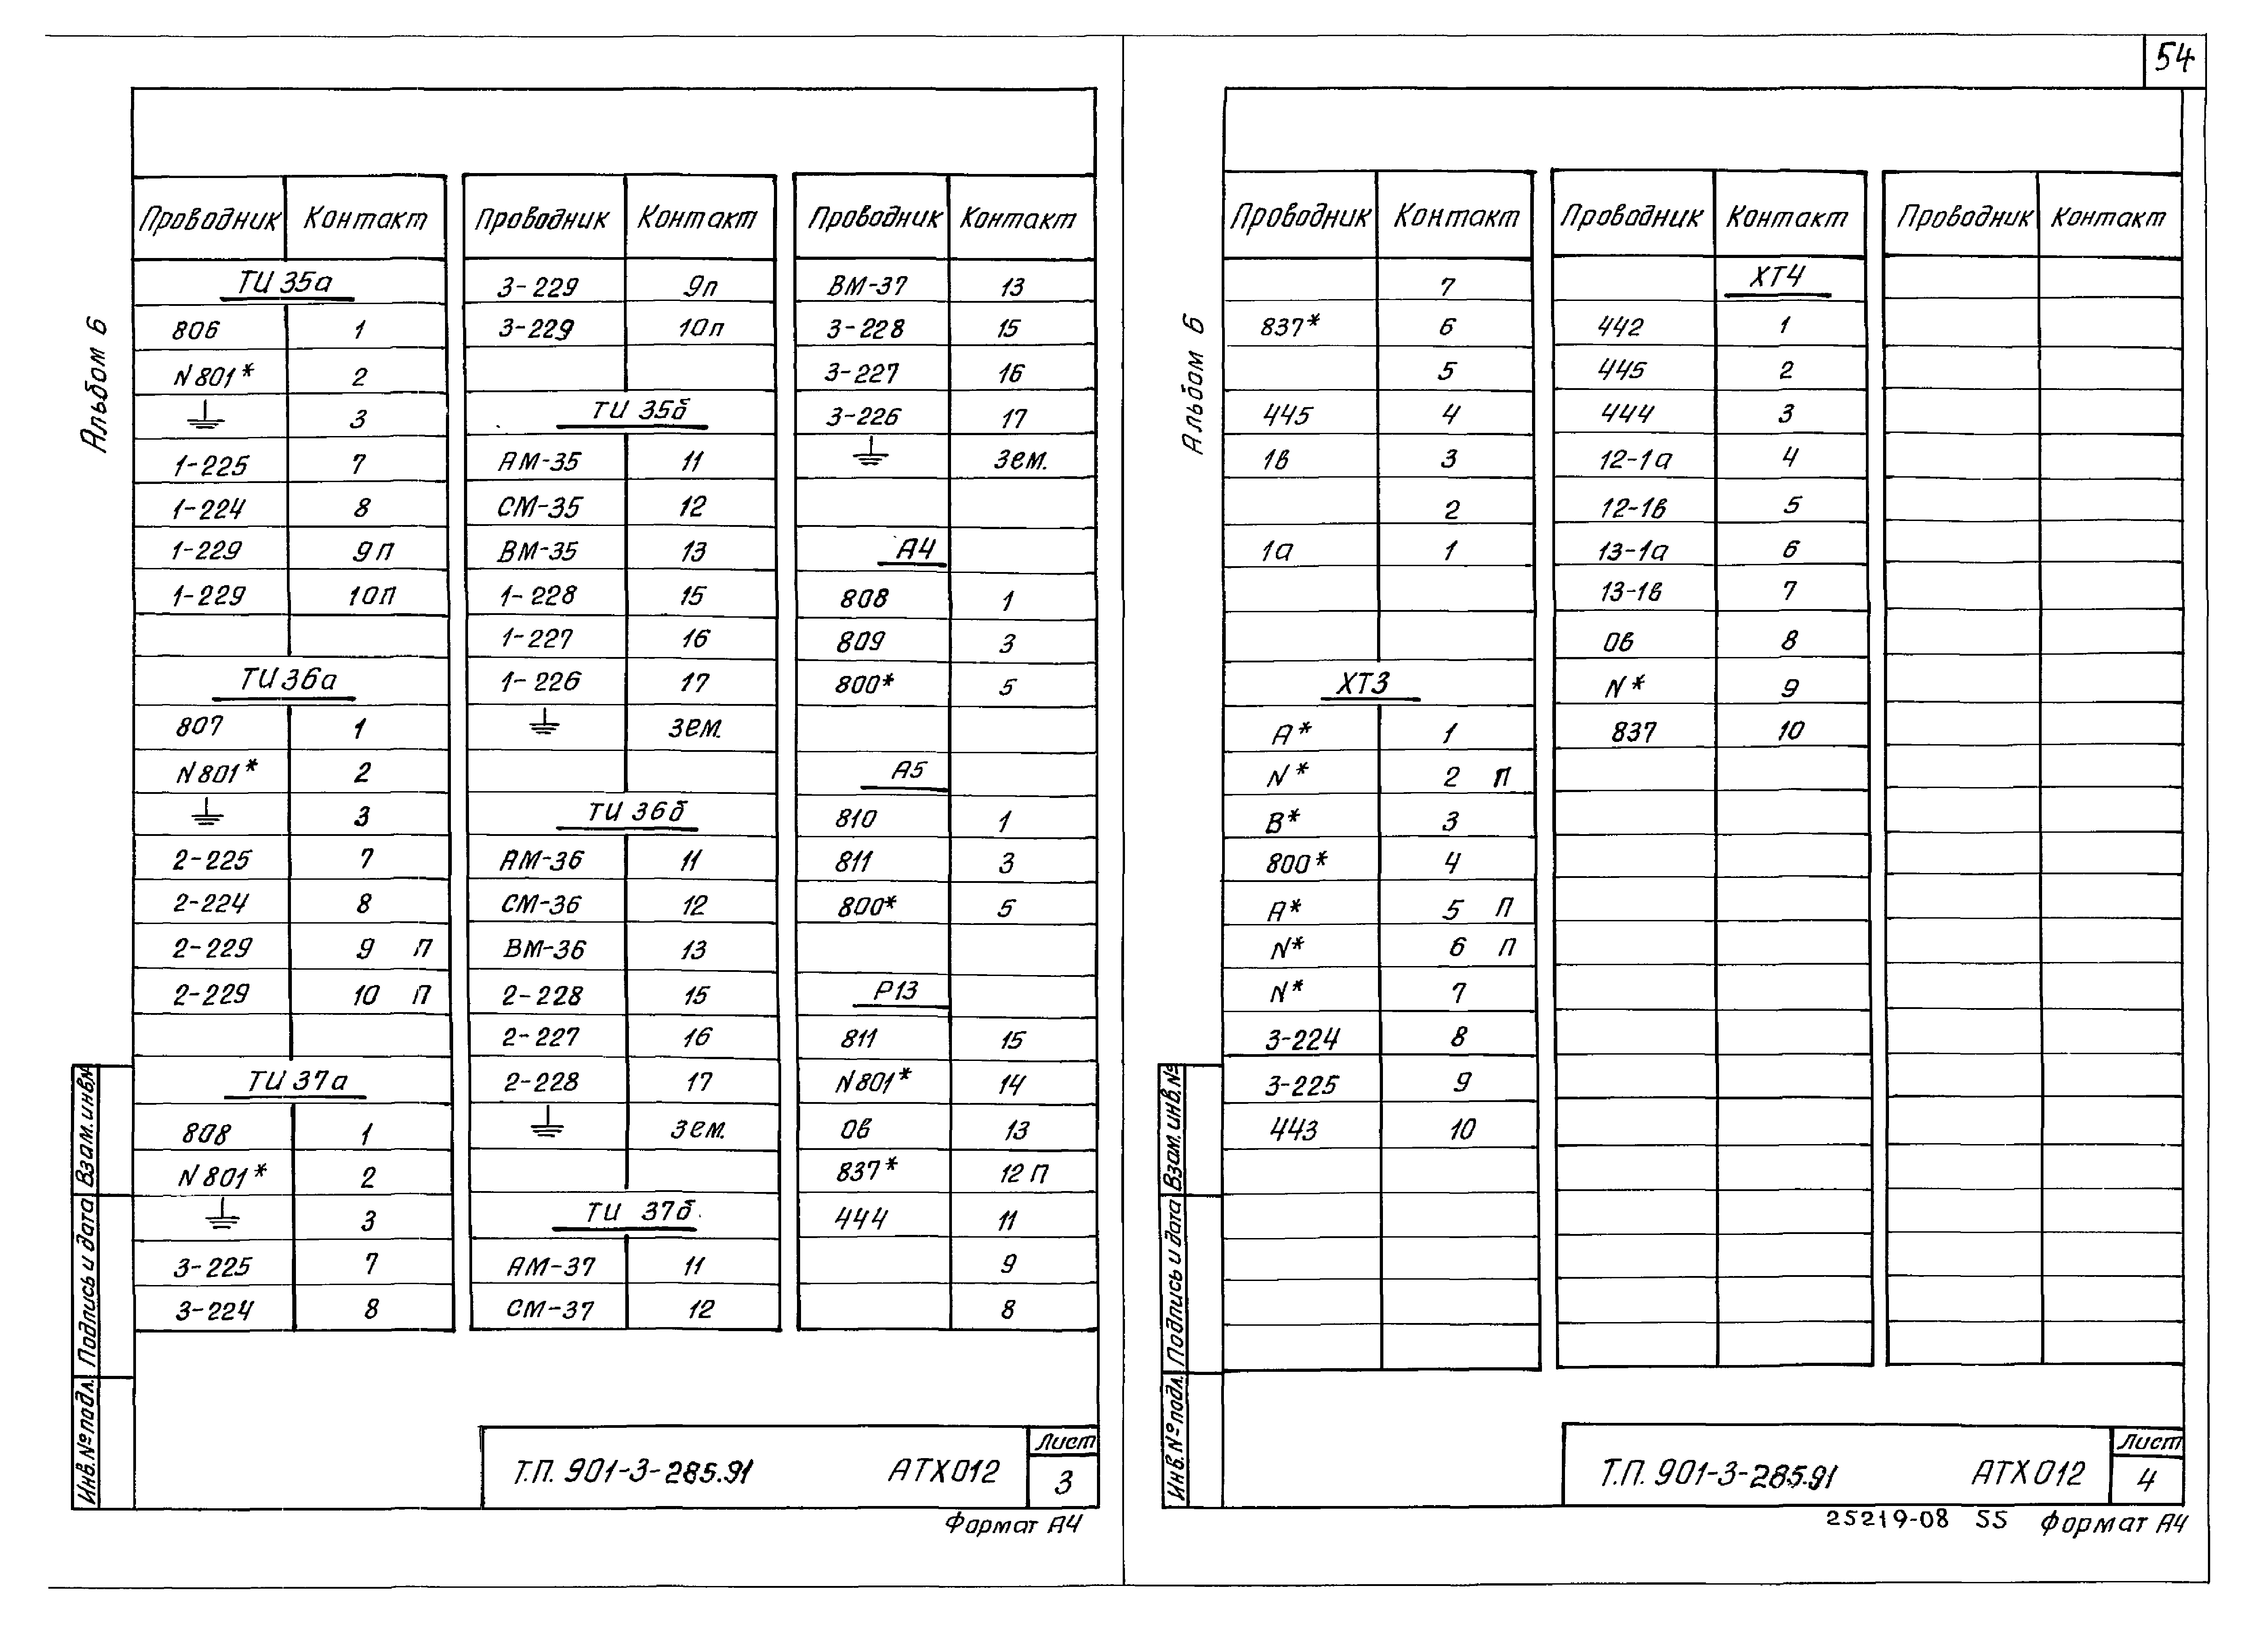 54
Альбом 6
Проводник Контакт
ТИ 35а
806 1
N801* 2
⏚ 3
1-225 7
1-224 8
1-229 9П
1-229 10П
ТИ 36а
807 1
N801* 2
⏚ 3
2-225 7
2-224 8
2-229 9 П
2-229 10 П
ТИ 37а
808 1
N801* 2
⏚ 3
3-225 7
3-224 8
Проводник Контакт
3-229 9п
3-229 10п
ТИ 35б
АМ-35 11
СМ-35 12
ВМ-35 13
1-228 15
1-227 16
1-226 17
⏚ Зем.
ТИ 36б
АМ-36 11
СМ-36 12
ВМ-36 13
2-228 15
2-227 16
2-228 17
⏚ Зем.
ТИ 37б
АМ-37 11
СМ-37 12
Проводник Контакт
ВМ-37 13
3-228 15
3-227 16
3-226 17
⏚ Зем.
А4
808 1
809 3
800* 5
А5
810 1
811 3
800* 5
Р13
811 15
N801* 14
0в 13
837* 12 П
444 11
9
8
Инв.№подл. Подпись и дата Взам.инв.№
Т.П. 901-3-285.91 АТХ012
Лист
3
Формат А4
Альбом 6
Проводник Контакт
7
837* 6
5
445 4
1в 3
2
1а 1
ХТ3
А* 1
N* 2 П
В* 3
800* 4
А* 5 П
N* 6 П
N* 7
3-224 8
3-225 9
443 10
Проводник Контакт
ХТ4
442 1
445 2
444 3
12-1а 4
12-1в 5
13-1а 6
13-1в 7
0в 8
N* 9
837 10
Проводник Контакт
Инв.№подл. Подпись и дата Взам.инв.№
Т.П. 901-3-285.91 АТХ012
Лист
4
25219-08 55 Формат А4